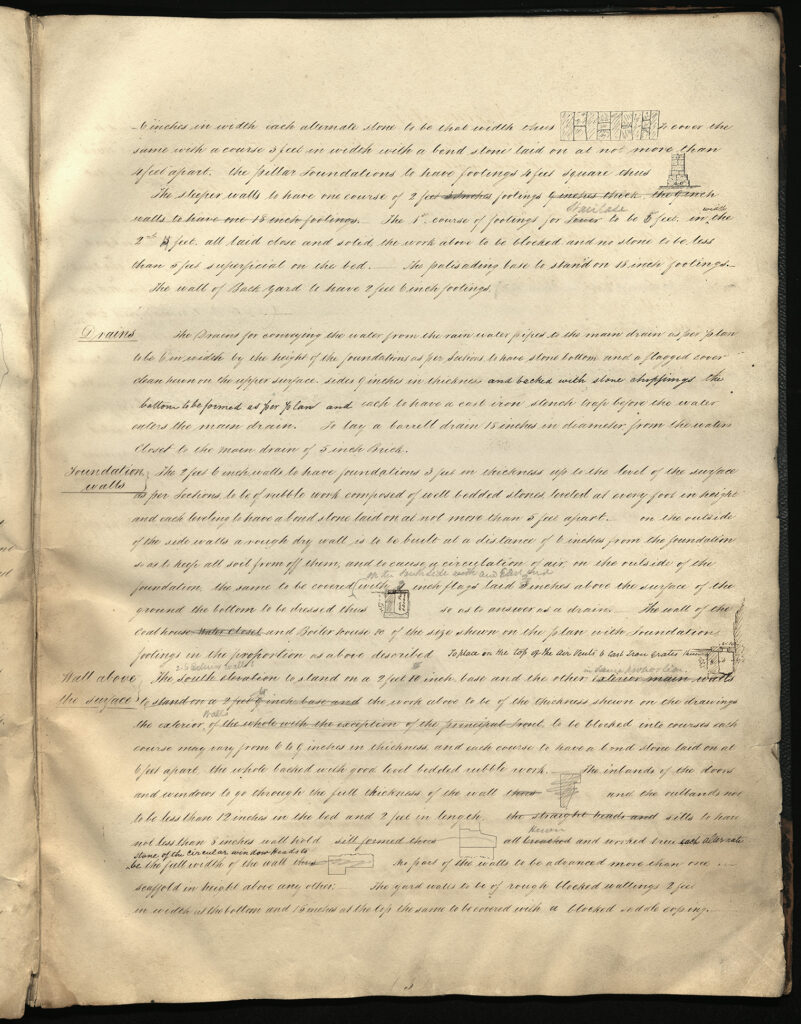 6 inches in width each alternate stone to be that width thus to cover the
same with a course 3 feet in width with a bond stone laid on at not more than
4 feet apart. the pillar Foundations to have footings 4 feet square thus
The sleeper walls to have one course of 2 feet footings 6 inches thick the 6 inch
Staircase
walls to have one 18 inch footings. The 1st course of footings for Tower to be feet in width the
2nd feet all laid close and solid the work above to be blocked and no stone to be less
than 3 feet superficial on the bed. The palisading base to stand on 18 inch footings.
The wall of Back Yard to have 2 feet 6 inch footings.
Drains The Drains for conveying the water from the rain water pipes to the main drain as per plan
to be 6 in width by the height of the foundations as per Sections to have stone bottom and a flagged cover
clean hewn on the upper surface. sides 9 inches in thickness and backed with stone choppings the
bottom to be formed as per plan and each to have a cast iron stench trap before the water
enters the main drain. To lay a barrell drain 15 inches in diameter from the water
Closet to the main drain of 5 inch Brick.
Foundation walls The 2 feet 6 inch walls to have foundations 3 feet in thickness up to the level of the surface
as per Sections, to be of rubble work composed of well bedded stones leveled at every foot in height
and each leveling to have a bond stone laid on at not more than 5 feet apart. on the outside
of the side walls a rough dry wall is to be built at a distance of 6 inches from the foundation
so as to keep all soil from off them, and to cause a circulation of air, on the outside of the
on the South Side with and East End
foundation, the same to be covered with inch flags laid 3 inches above the surface of the
ground the bottom to be dressed thus so as to answer as a drain. The wall of the
Coalhouse Water Closet and Boiler house to of the size shewn on the plan with Foundation
footings in the proportion as above described To place on the top of the Air Vaults 6 Cast Iron Grates thus
in same proportion
Wall above the surface The South elevation to stand on a 2 feet 10 inch base and the other exterior main walls
to stand on a 2 feet 9 inch base and the work above to be of the thickness shewn on the drawings
Walls
the exterior of the whole with the exception of the principal Front, to be blocked into courses each
course may vary from 6 to 9 inches in thickness, and each course to have a bond stone laid on at
6 feet apart, the whole backed with good level bedded rubble work. The inbands of the doors
and windows to go through the full thickness of the wall thus and the outbands not
to be less than 12 inches in the bed and 2 feet in length. the straight heads and sills to have
Hewn
not less than 8 inches wall hold sill formed thus all broached and worked true each alternate
stone of the circular window heads to
be the full width of the wall thus No part of the walls to be advanced more than one
scaffold in height above any other. The yard walls to be of rough blocked wallings 2 feet
in width at the bottom and 15 inches at the top the same to be covered with a blocked saddle coping.